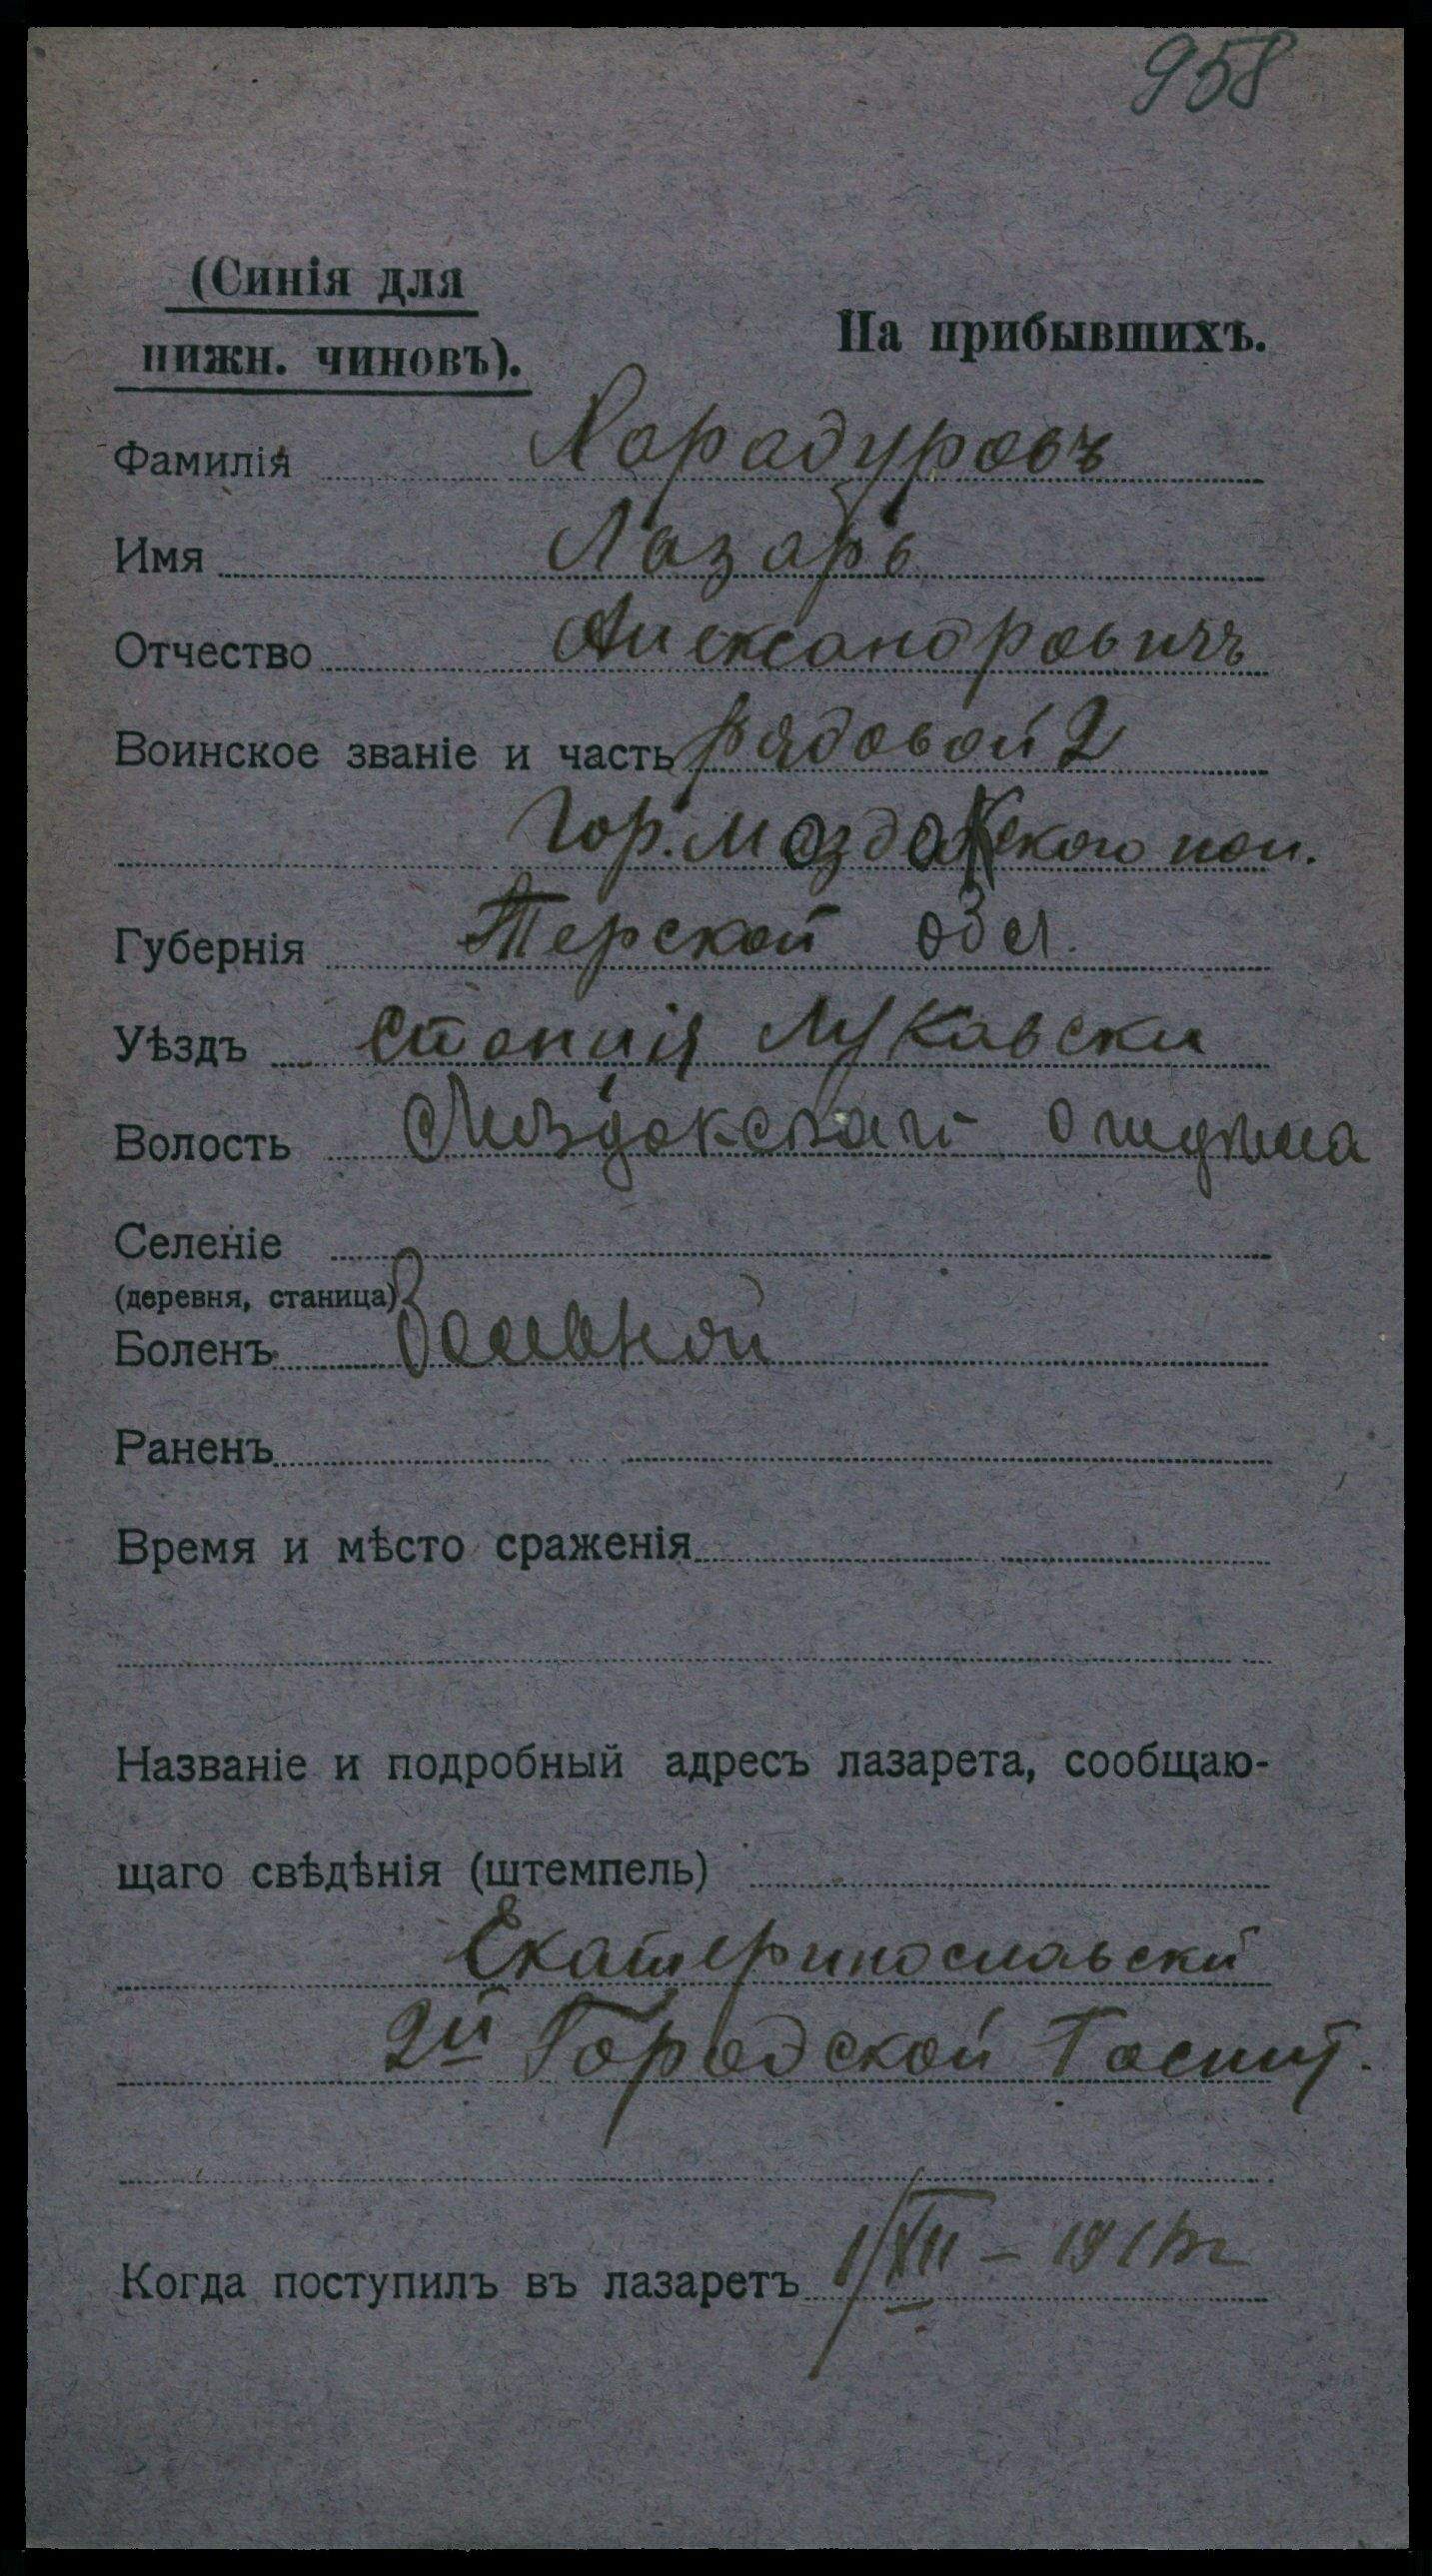 958
(Синія для
нижн. чиновъ).
На прибывшихъ.
Фамилія Харадуровъ
Имя Лазарь
Отчество Александровичъ
Воинское званіе и часть рядовой 2
Гор. Моздокского пол.
Губернія Терской обл.
Уѣздъ Станція Луковски
Волость Моздокскаго отдѣла
Селеніе
(деревня, станица)
Боленъ Больной
Раненъ
Время и мѣсто сраженія
Названіе и подробный адресъ лазарета, сообщаю-
щаго свѣдѣнія (штемпель)
Екатеринославски
2й Городской Госпит.
Когда поступилъ въ лазаретъ 1/XII –